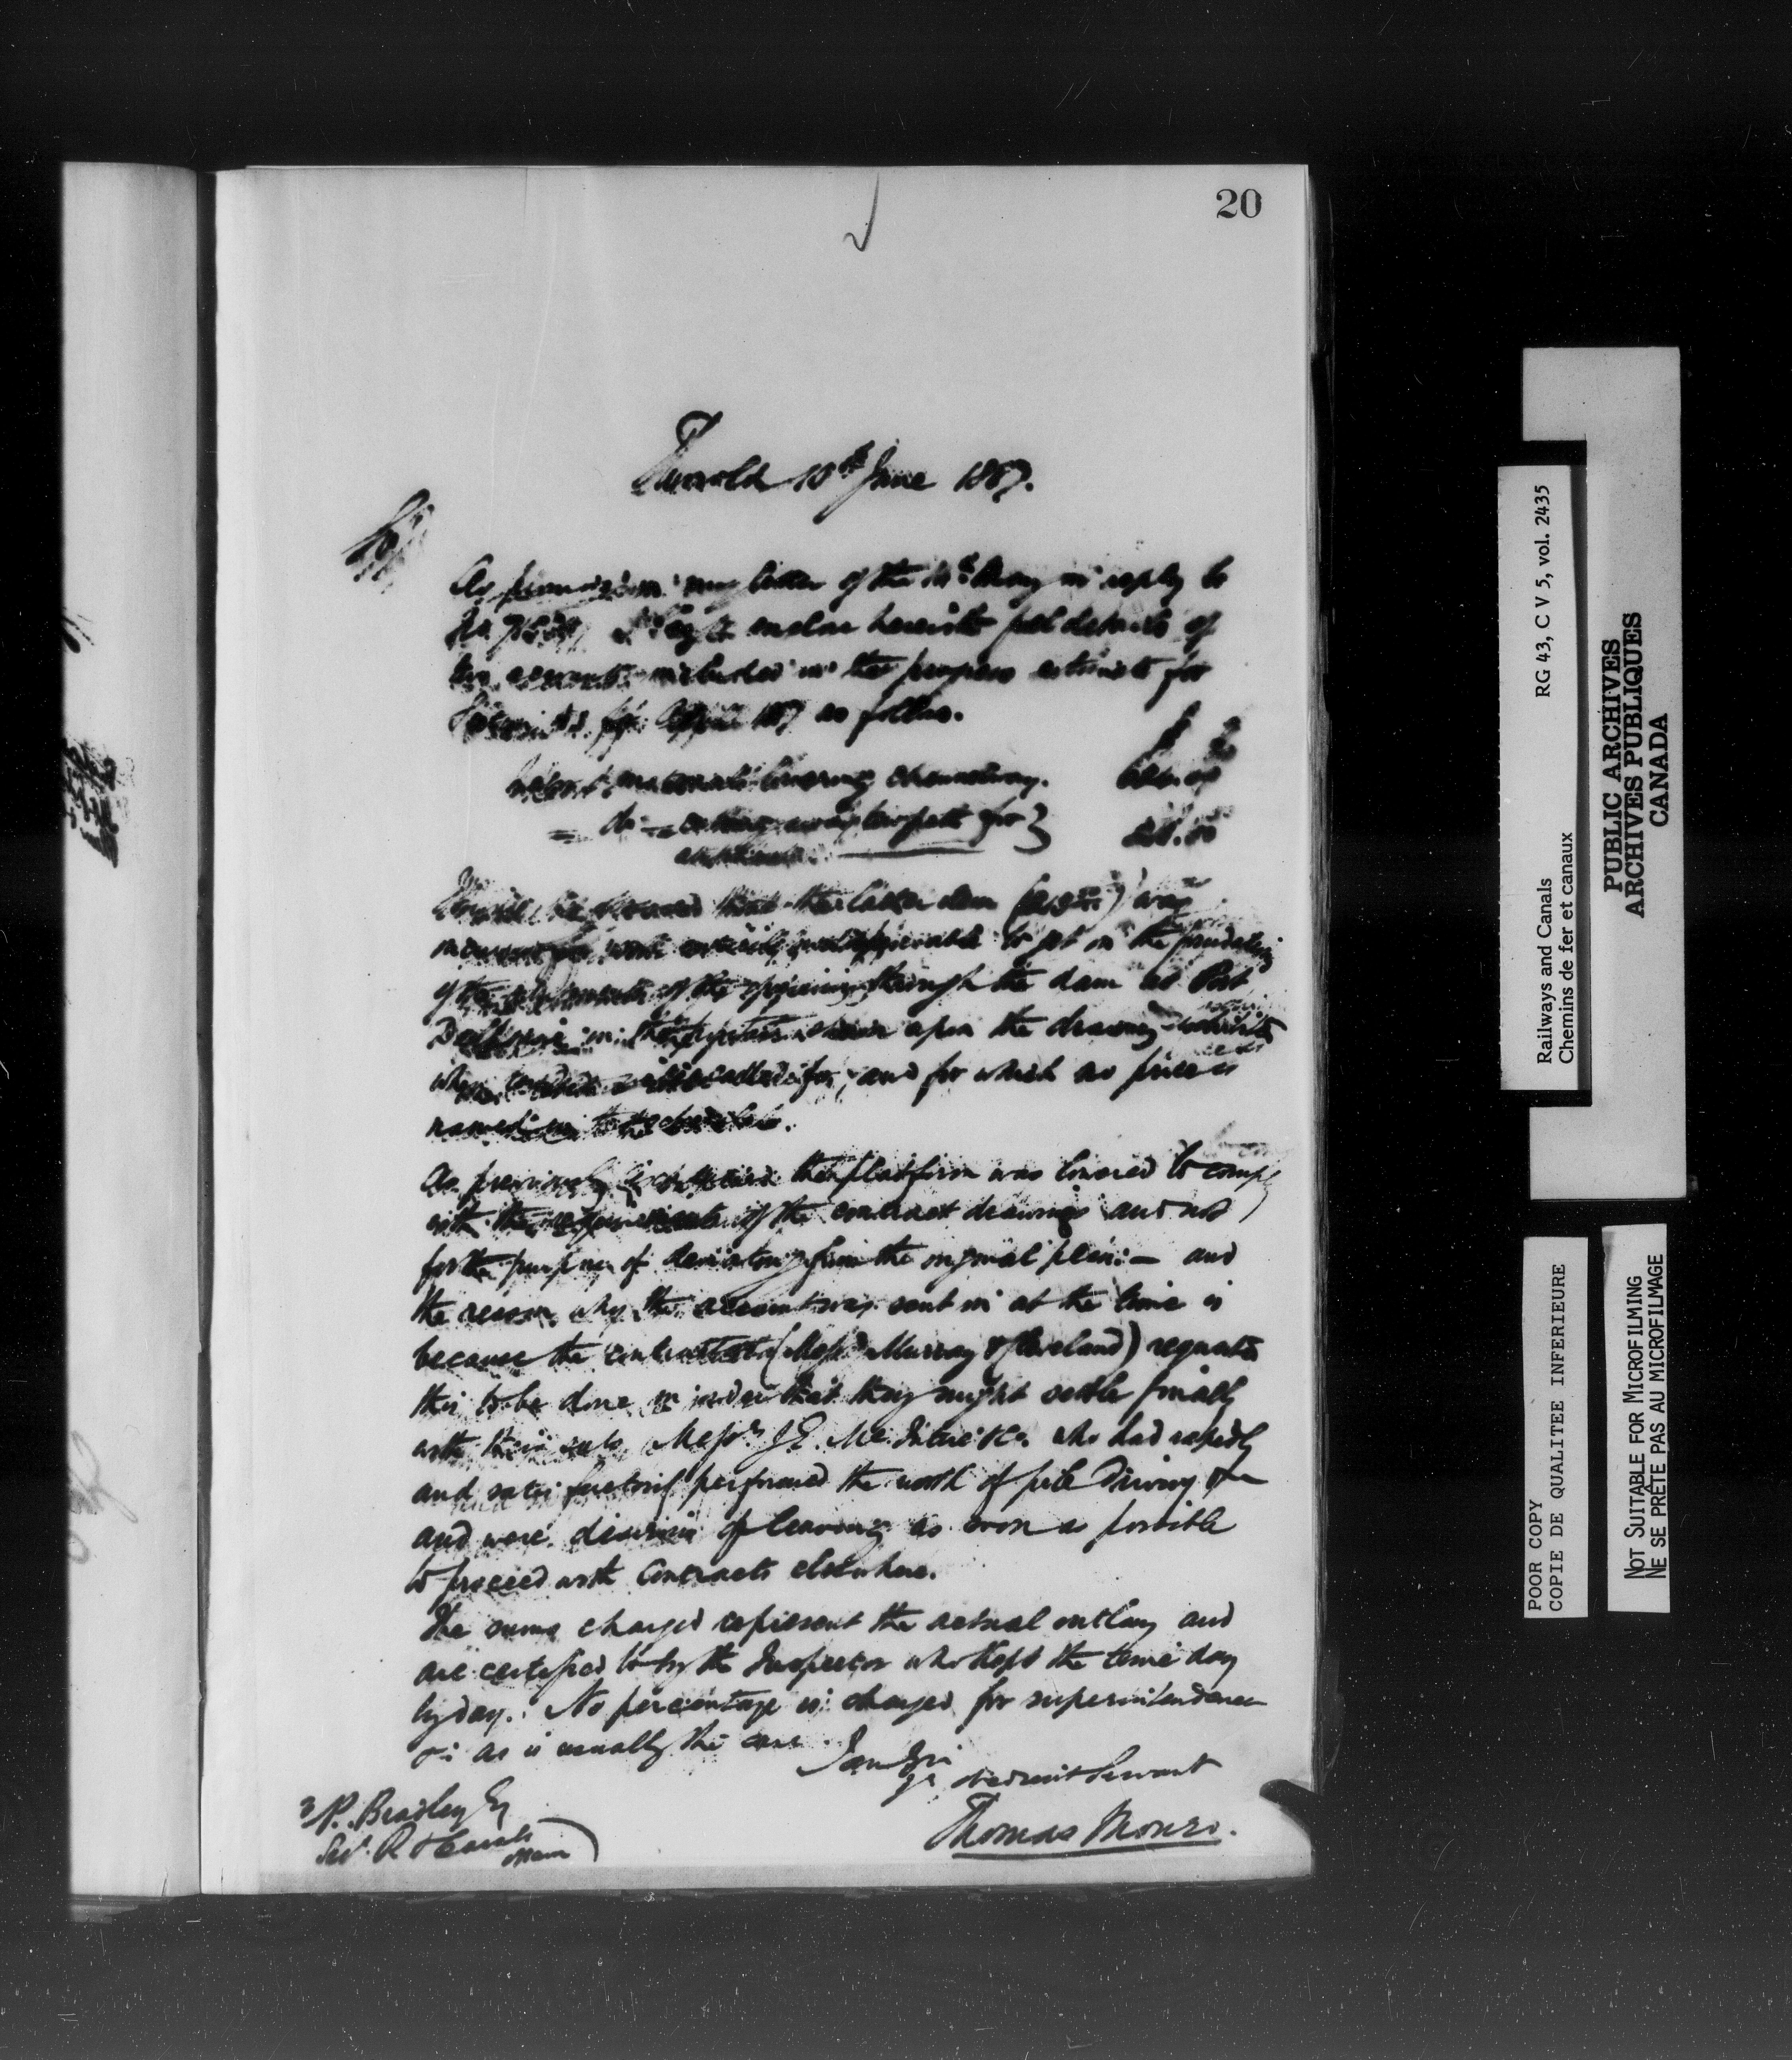 20
Thorold 10th June 1887.
Sir
As promised in my letter of the May in reply to
No. I beg to enclose herewith full details of
two accounts included in the progress estimate for
for April 1887 as follows.
Labor & materials lowering
do cutting away towpath for
It will be observed that the latter item was
incurred for work to get in the foundation
of the abutments of the opening through the dam at Port
Dalhousie in the shewn upon the drawing
when called for, and for which no price is
named in the schedule.
As previously explained the platform was lowered to comply
with the requirements of the contract drawings and not
for the purpose of deviating from the original plan:— and
the reason why the account was sent in at the time is
because the contractors (Messrs Murray & Cleveland) requested
this to be done in order that they might settle finally
with their subs, Messrs J.E. & Co. who had rapidly
and satisfactorily performed the work of pile driving &c
and were desirous of leaving as soon as possible
to proceed with contracts elsewhere.
The sums charged represent the actual outlay and
are certified to by the Inspector who kept the time day
by day. No percentage is charged for superintendence
&c as is usually the case.
I am Sir
Yr obedient Servant
Thomas Monro.
A.P. Bradley Esq
Sec. R & Canals
Ottawa
Railways and Canals RG 43, C V 5, vol. 2435
Chemins de fer et canaux
PUBLIC ARCHIVES
ARCHIVES PUBLIQUES
CANADA
POOR COPY
COPIE DE QUALITEE INFERIEURE
NOT SUITABLE FOR MICROFILMING
NE SE PRÊTE PAS AU MICROFILMAGE